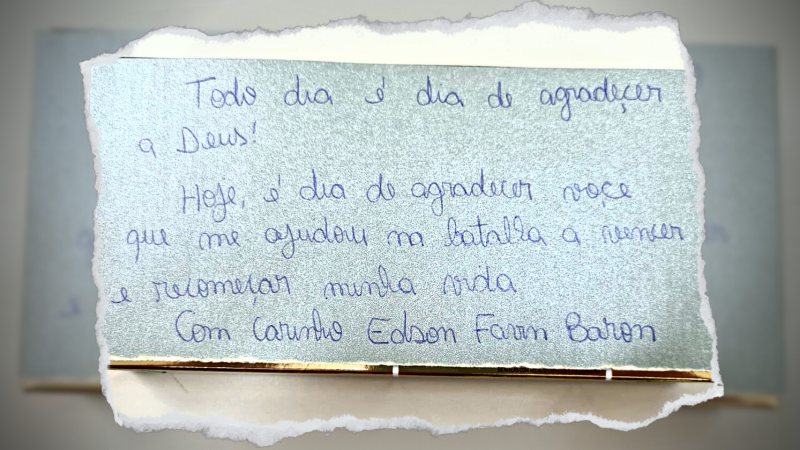 Todo dia é dia de agradeçer
a Deus!
Hoje, é dia de agradecer voçe
que me ajudou na batalha a vencer
e recomeçar minha vida
Com Carinho Edson Favin Baron